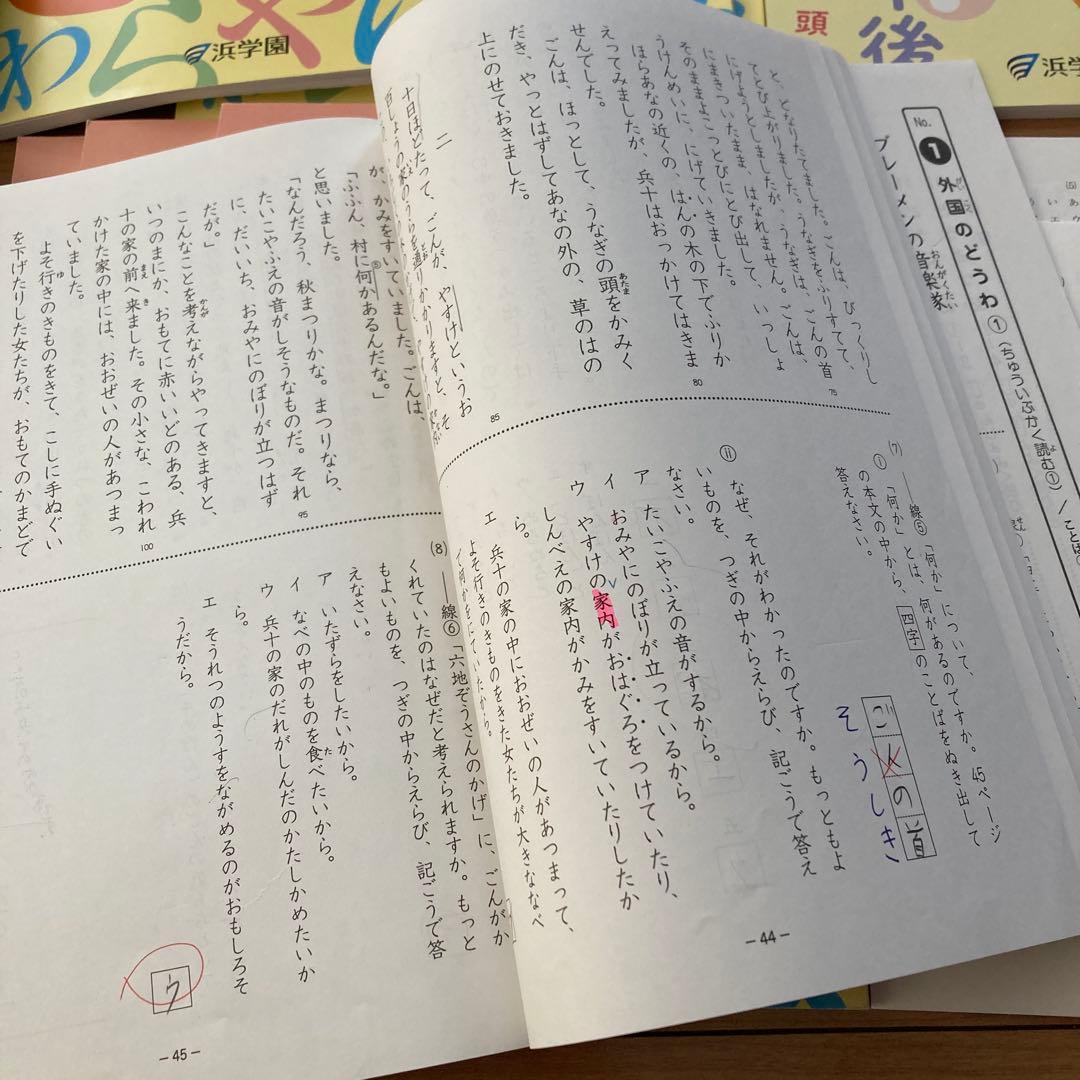 浜学園
頭
後
浜学
No.
1 外国のどうわ①(ちゅういぶかく読む①)/ことば
がいこく
よ
ブレーメンの音楽家
おんがくたい
と、どなりたてました。ごんは、びっくりし
てとび上がりました。うなぎをふりすてて、
にげようとしましたが、うなぎは、ごんの首
にまきついたまま、はなれません。ごんは、
そのままよこっとびにとび出して、いっしょ
うけんめいに、にげていきました。
ほらあなの近くの、はんの木の下でふりか
えってみましたが、兵十はおっかけてはきま
せんでした。
ごんは、ほっとして、うなぎの頭をかみく
あたま
だき、やっとはずしてあなの外の、草のはの
上にのせておきました。
75
80
二
十日ほどたって、ごんが、やすけというお
85
が、かみをすいていました。ごんは、
「ふふん、村に何かあるんだな。」
⑤
と思いました。
「なんだろう、秋まつりかな。まつりなら、
たいこやふえの音がしそうなものだ。それ
に、だいいち、おみやにのぼりが立つはず
だが。」
こんなことを考えながらやってきますと、
かんが
いつのまにか、おもてに赤いいどのある、兵
十の家の前へ来ました。その小さな、こわれ
まえ
き
かけた家の中には、おおぜいの人があつまっ
ていました。
よそ行きのきものをきて、こしに手ぬぐい
ゆ
を下げたりした女たちが、おもてのかまどで
95
100
(7) ――線⑤「何か」について、
① 「何か」とは、何があるのですか。45ページ
の本文の中から、四字のことばをぬき出して
答えなさい。
ごんの首
そうしき
ⅱ なぜ、それがわかったのですか。もっともよ
いものを、つぎの中からえらび、記ごうで答え
なさい。
ア たいこやふえの音がするから。
イ おみやにのぼりが立っているから。
ウ やすけの家内がおはぐろをつけていたり、
しんべえの家内がかみをすいていたりしたか
ら。
エ 兵十の家の中におおぜいの人があつまって、
よそ行きのきものをきた女たちが大きななべ
で何かをにていたから。
－44－
(8) ――線⑥「六地ぞうさんのかげ」に、ごんがか
くれていたのはなぜだと考えられますか。もっと
もよいものを、つぎの中からえらび、記ごうで答
えなさい。
ア いたずらをしたいから。
イ なべの中のものを食べたいから。
た
ウ 兵十の家のだれがしんだのかたしかめたいか
ら。
エ そうれつのようすをながめるのがおもしろそ
うだから。
ウ
－45－